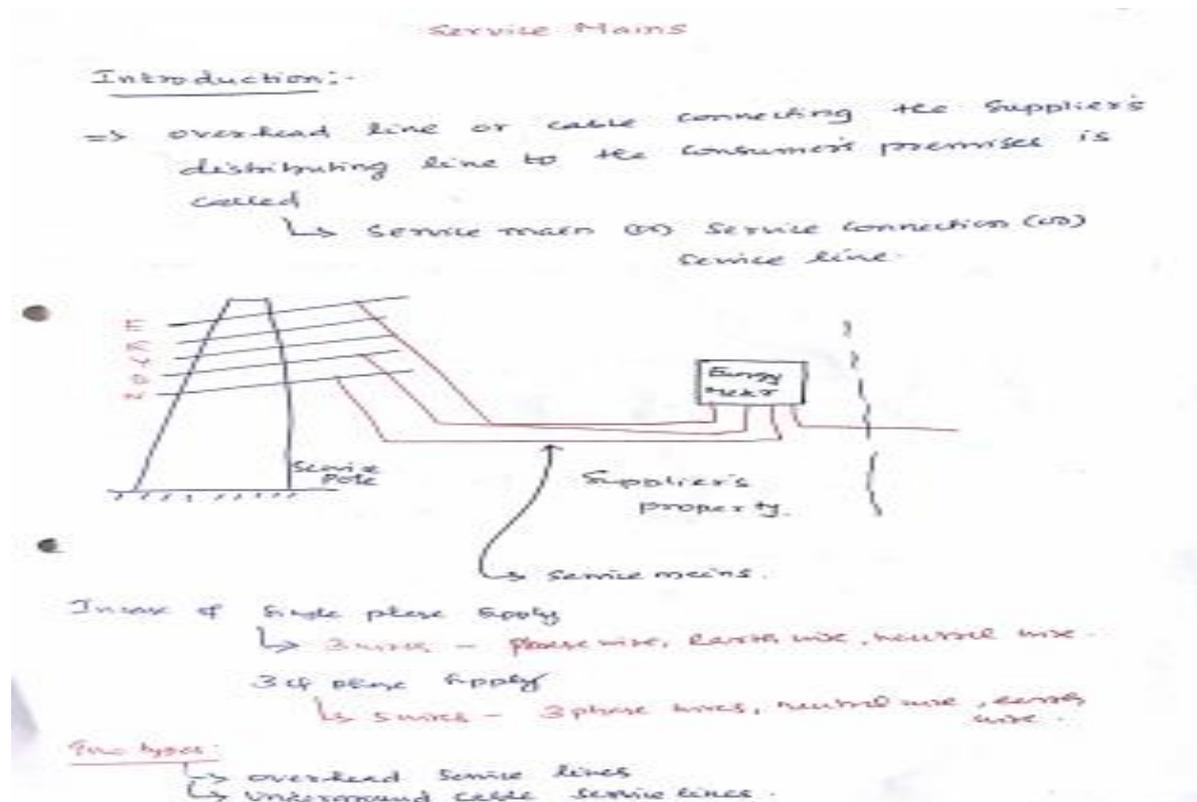 Service Mains
Introduction:-
=> overhead line or cable connecting the Supplier's
distributing line to the consumer's premises is
called
↳ service main (or) service connection (or)
service line.
E
B
Y
R
N
Energy
meter
Service
Pole
Supplier's
property.
↳ service mains.
Incase of Single phase Supply
↳ 3 wires - phase wire, earth wire, neutral wire.
phase Supply
↳ 5 wires - 3 phase wires, neutral wire, earth
wire.
Two types:
↳ overhead service lines
↳ underground cable service lines.